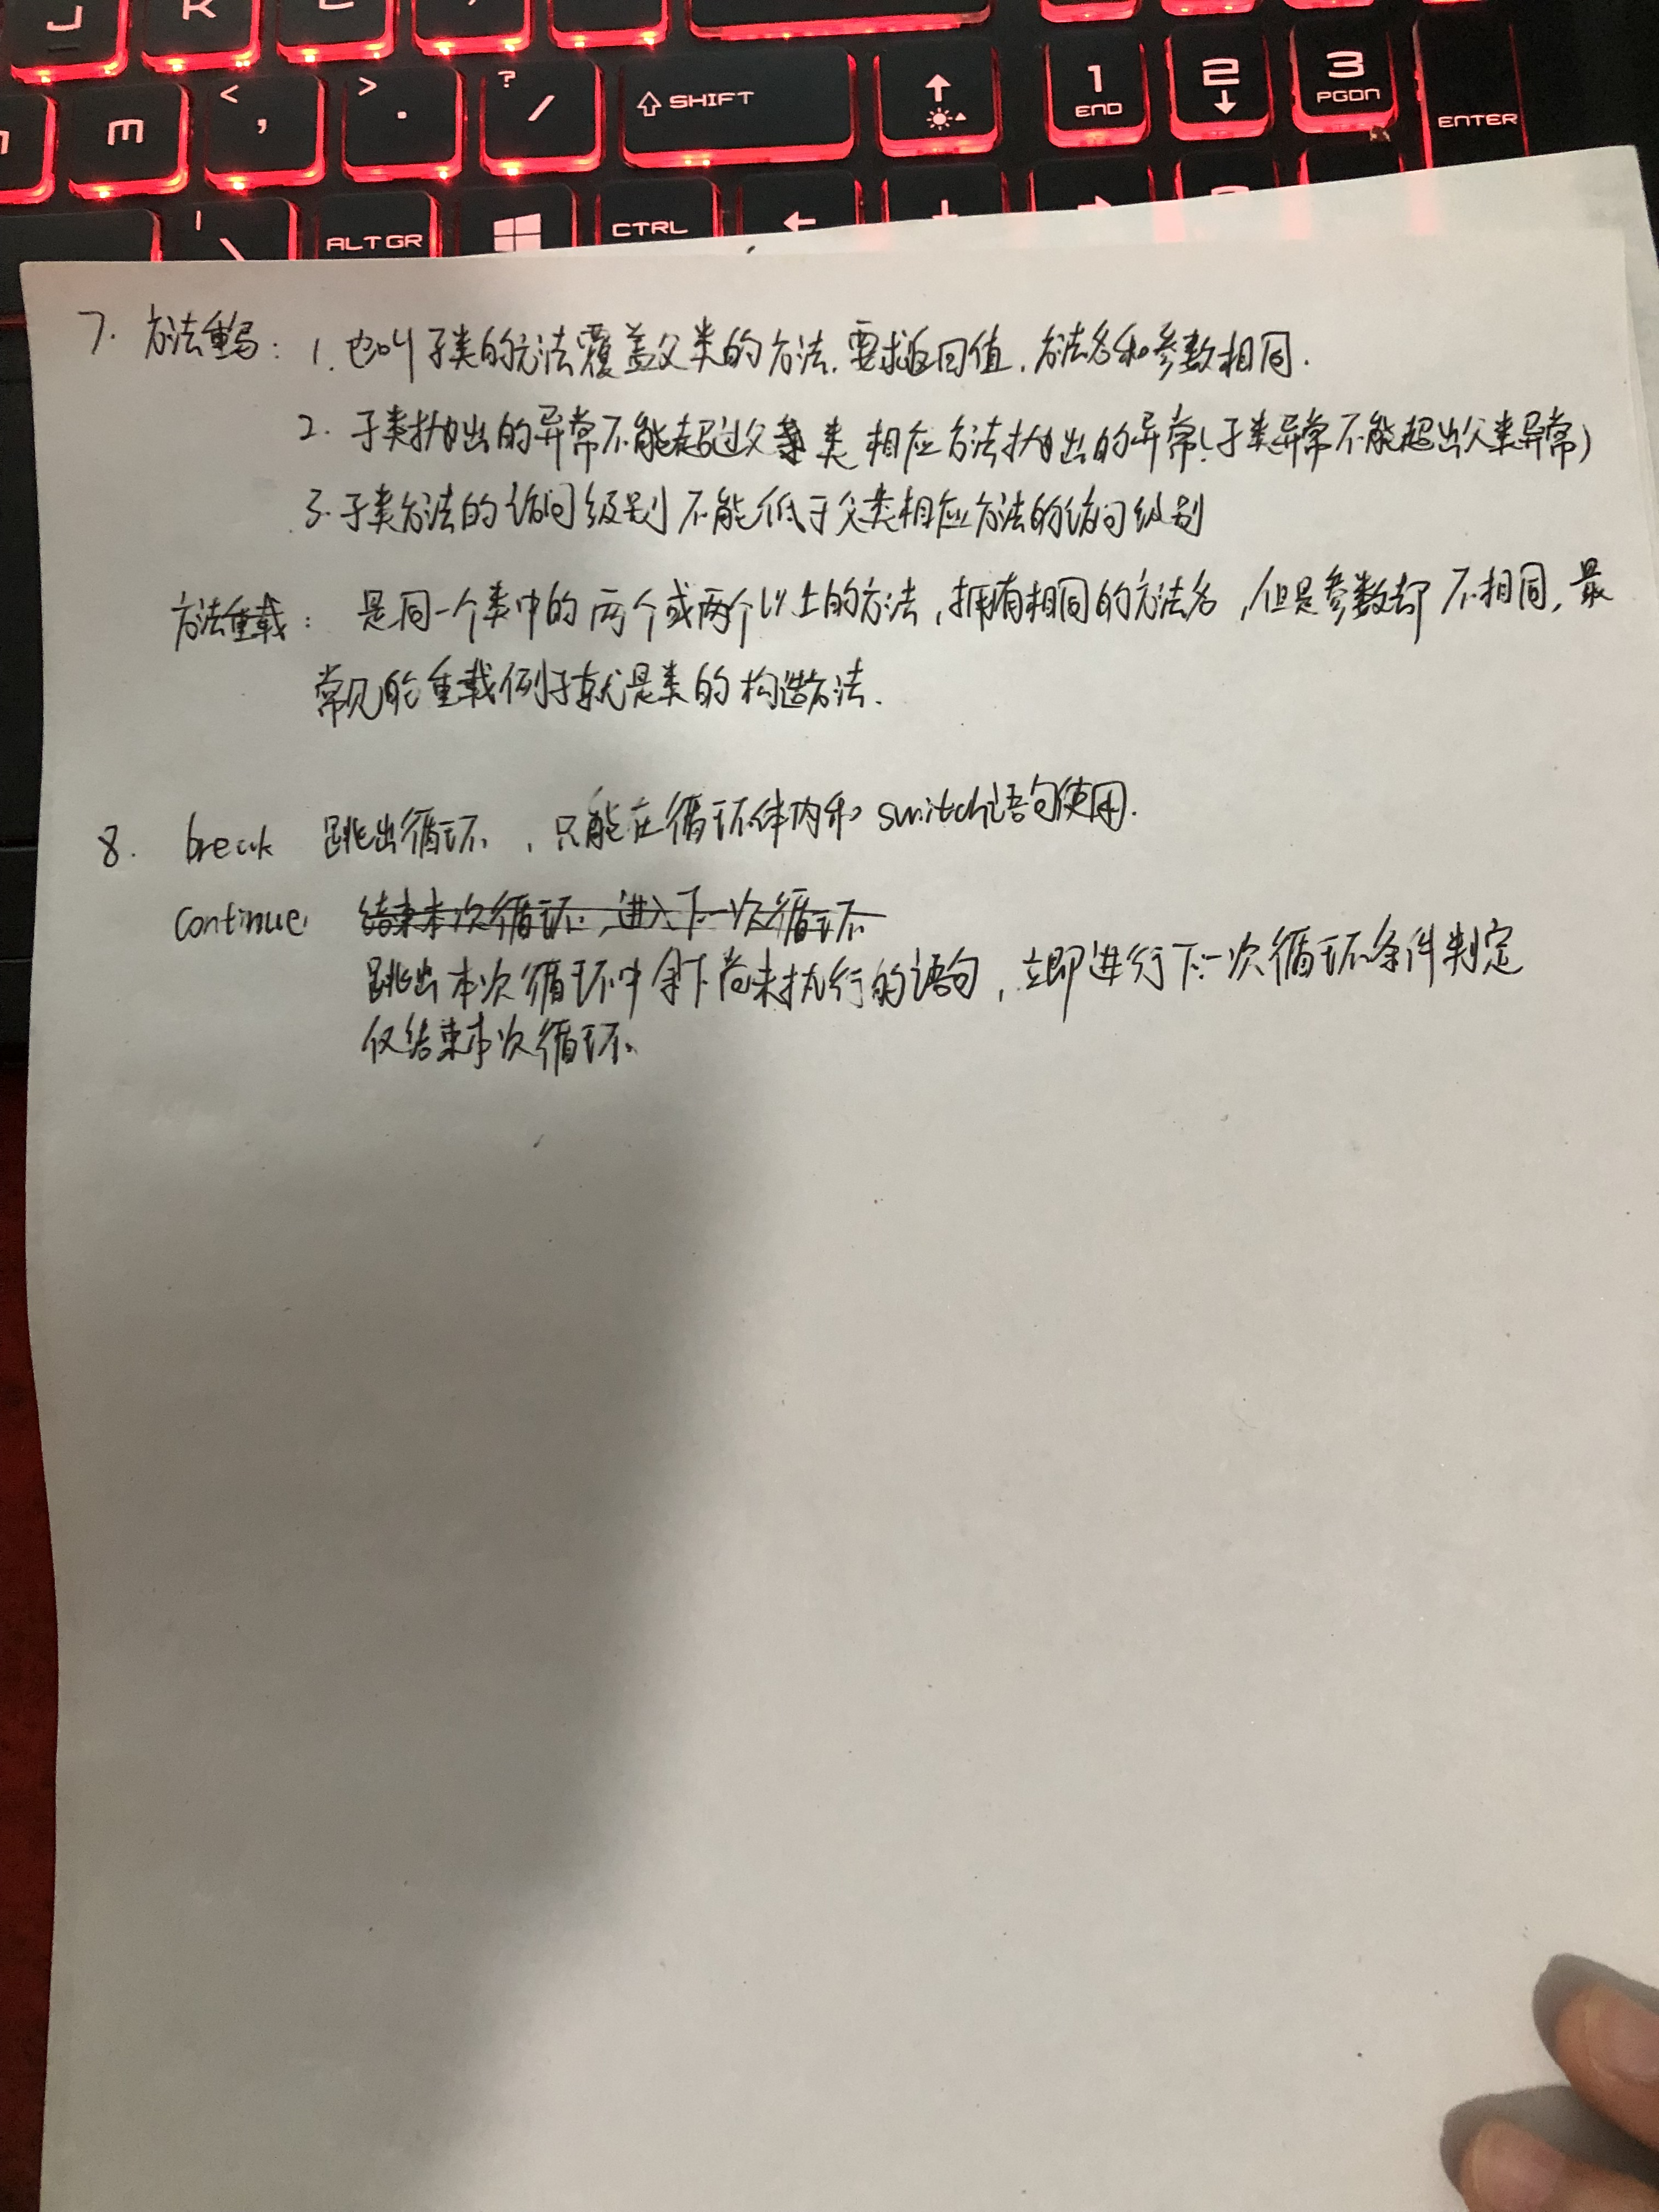 J K L
M < , > . ? / SHIFT 1 END 2 3 PGDN ENTER
\ ALT GR CTRL
7. 方法重写：1. 也叫子类的方法覆盖父类的方法，要求返回值，方法名和参数相同.
2. 子类抛出的异常不能超过父类相应方法抛出的异常(子类异常不能超出父类异常)
3. 子类方法的访问级别不能低于父类相应方法的访问级别
方法重载： 是同一个类中的两个或两个以上的方法，拥有相同的方法名，但是参数却不相同，最
常见的重载例子就是类的构造方法.
8. break 跳出循环，只能在循环体内和switch语句使用.
continue 结束本次循环，进入下一次循环
跳出本次循环中余下尚未执行的语句，立即进行下一次循环条件判定
仅结束本次循环.